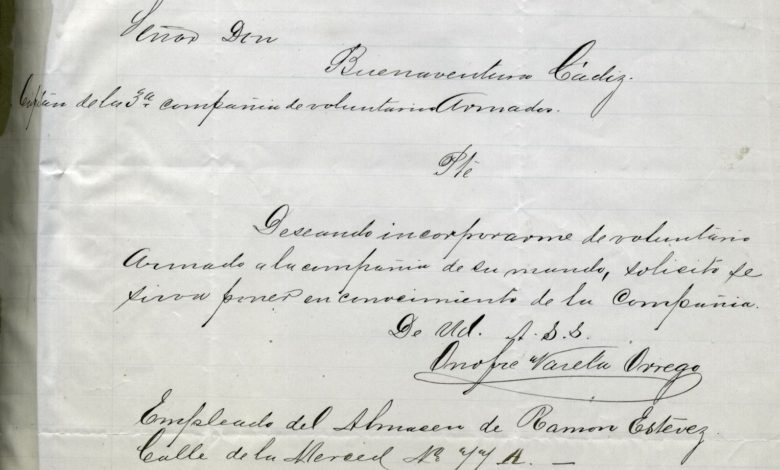 Señor Don
Buenaventura Cádiz.
Capitán de la 3a. compañia de voluntarios Armados.
Pte
Deseando incorporarme de voluntario
Armado a la compañia de su mando, solicito se
sirva poner en conocimiento de la Compañia.
De Ud. A. S. S.
Onofre Varela Orrego
Empleado del Almacen de Ramón Estévez.
Calle de la Merced No